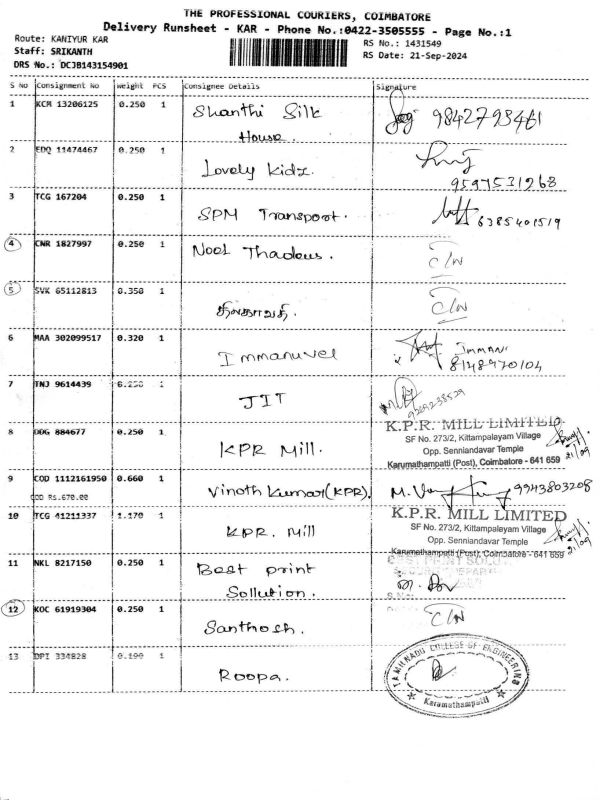 THE PROFESSIONAL COURIERS, COIMBATORE
Delivery Runsheet - KAR - Phone No.:0422-3505555 - Page No.:1
Route: KANIYUR KAR
RS No.: 1431549
Staff: SRIKANTH
RS Date: 21-Sep-2024
DRS No.: DCJB143154901
S No Consignment No Weight PCS Consignee Details Signature
1 KCM 13206125 0.250 1 Shanthi Silk House. 9842793461
2 EDQ 11474467 0.250 1 Lovely Kidz. 9597531268
3 TCG 167204 0.250 1 SPM Transport. 6385401519
4 CNR 1827997 0.250 1 Noel Thadeus. C/N
5 SVK 65112813 0.350 1 திலகாவதி. C/N
6 MAA 302099517 0.320 1 Immanuvel IMMANI 8148970104
7 TNJ 9614439 0.250 1 JIT 9289238529
8 DDG 884677 0.250 1 KPR Mill.
K.P.R. MILL LIMITED
SF No. 273/2, Kittampalayam Village
Opp. Senniandavar Temple
Karumathampatti (Post), Coimbatore - 641 659
21/09
9 COD 1112161950 0.660 1 Vinoth Kumar(KPR). 9943803208
COD RS.670.00
10 TCG 41211337 1.170 1 KPR. Mill
K.P.R. MILL LIMITED
SF No. 273/2, Kittampalayam Village
Opp. Senniandavar Temple
Karumathampatti (Post), Coimbatore - 641 659
21/09
11 NKL 8217150 0.250 1 Best print Sollution.
12 KOC 61919304 0.250 1 Santhosh. C/N
13 DPI 334828 0.100 1 Roopa.
TAMILNADU COLLEGE OF ENGINEERING
Karumathampatti